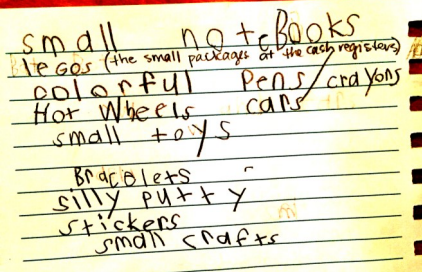 small noteBooks
leGos (the small packages at the cash registers)
colorful Pens/crayons
Hot Wheels cars
small toys
Bracelets
silly putty
stickers
small crafts